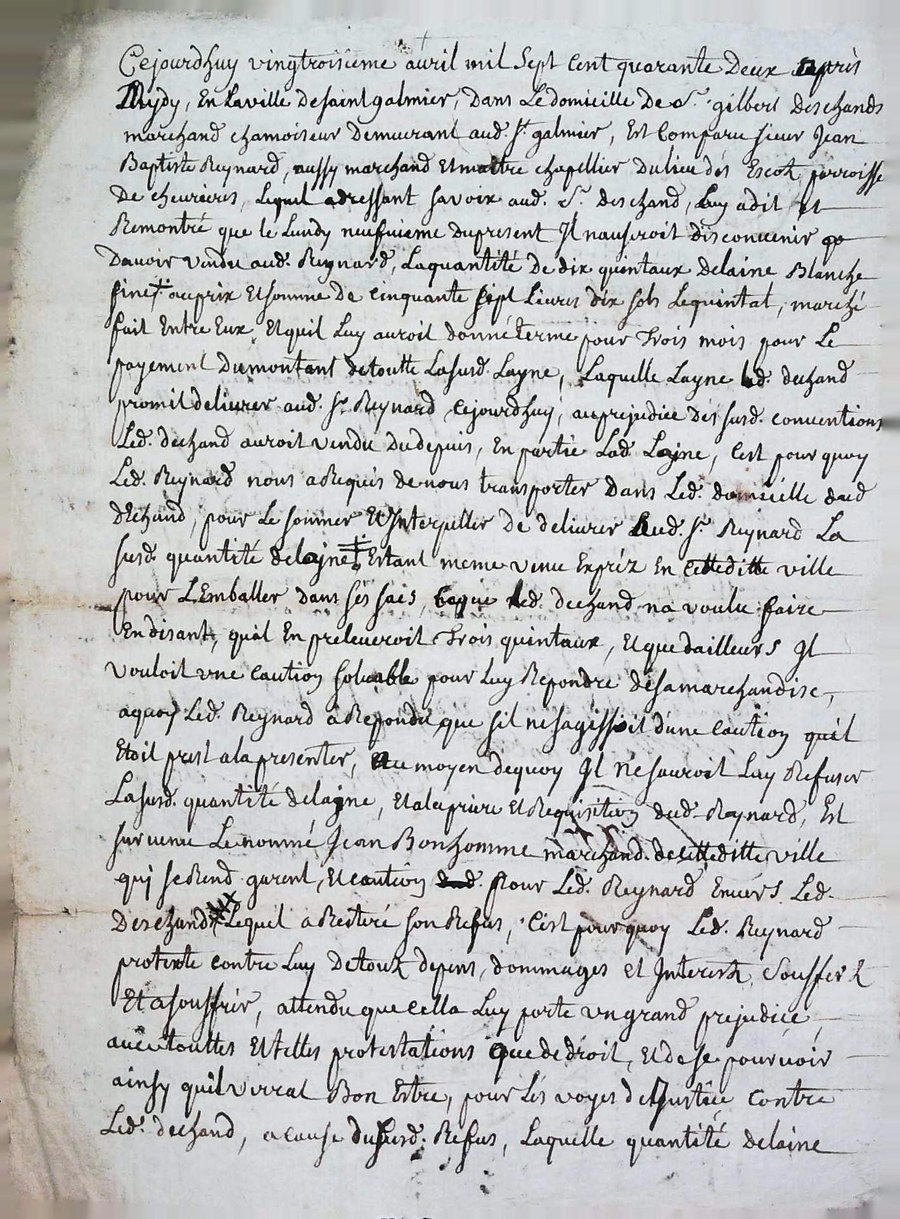 Cejourdhuy vingtroisieme auril mil Sept Cent quarante Deux apris
Mydy, En Laville desaint galmier, Dans Ledomicille De Sr. gilbert deschands
marchand chamoiseur Demeurant aud. St. galmier, Est Comparu sieur Jean
Baptiste Reynard, aussy marchand Et maitre chapellier Dulieu dés Escots parroisse
De cheurieres, Lequel adressant savoix aud. Sr. deschand, Luy adit, et
Remontré que le Lundy neufuieme dupresent Jl nauseroit disconuenir
Dauoir vendu aud. Reynard, Laquantité de dix quintaux delaine Blanche
fine auprix Etsomme de Cinquante sept Liures dix sols Lequintal, marché
fait Entre Eux, Etquil Luy auroit donné terme pour Trois mois pour Le
payement Dumontant detoutte Lasusd. Layne, Laquelle Layne Led. dechand
promit deliurer aud. Sr. Reynard Cejourdhuy, auprejudice Dés susd. conuentions
Led. dechand auroit vendu Dudepuis, En partie Lad. Layne, Cest pour quoy
Led. Reynard nous a Requis de nous transporter Dans Led. domicille dud
dEchand, pour Le sommer Et Interpeller de deliurer Aud. Sr. Reynard La
susd. quantité delayne Estant meme venu Expréz En cetteditte ville
pour LEmballer Dans sés sacs, Ceque Led. dechand na voulu faire
En disant, quil En preleueroit Trois quintaux, Et que dailleurs Jl
vouloit vne Caution soluable pour Luy Repondre désamarchandise,
aquoy Led. Reynard a Repondu que sil nesagissoit dune Caution quil
Etoit prest alapresenter, Au moyen dequoy Jl Nesauroit Luy Refuser
Lasusd. quantité delayne, Etalapriere Et Requisition dud. Reynard, Est
suruenu Le nommé Jean Bonhomme marchand decetteditte ville
qui se Rend garent, Et caution pour Led. Reynard Enuers Led.
Deschand Lequel a Reiteré son Refus, Cest pour quoy Led. Reynard
proteste contre Luy De toux depens, dommages Et Interests, Soufferts
Et asouffrir, attendu que Cella Luy porte vn grand prejudice,
auec touttes Et telles protestations que dedroit, Et dese pouruoir
ainsy quil verrat Bon Estre, pour Lés voyes de Justice Contre
Led. dechand, a cause Dususd. Refus, Laquelle quantité delaine